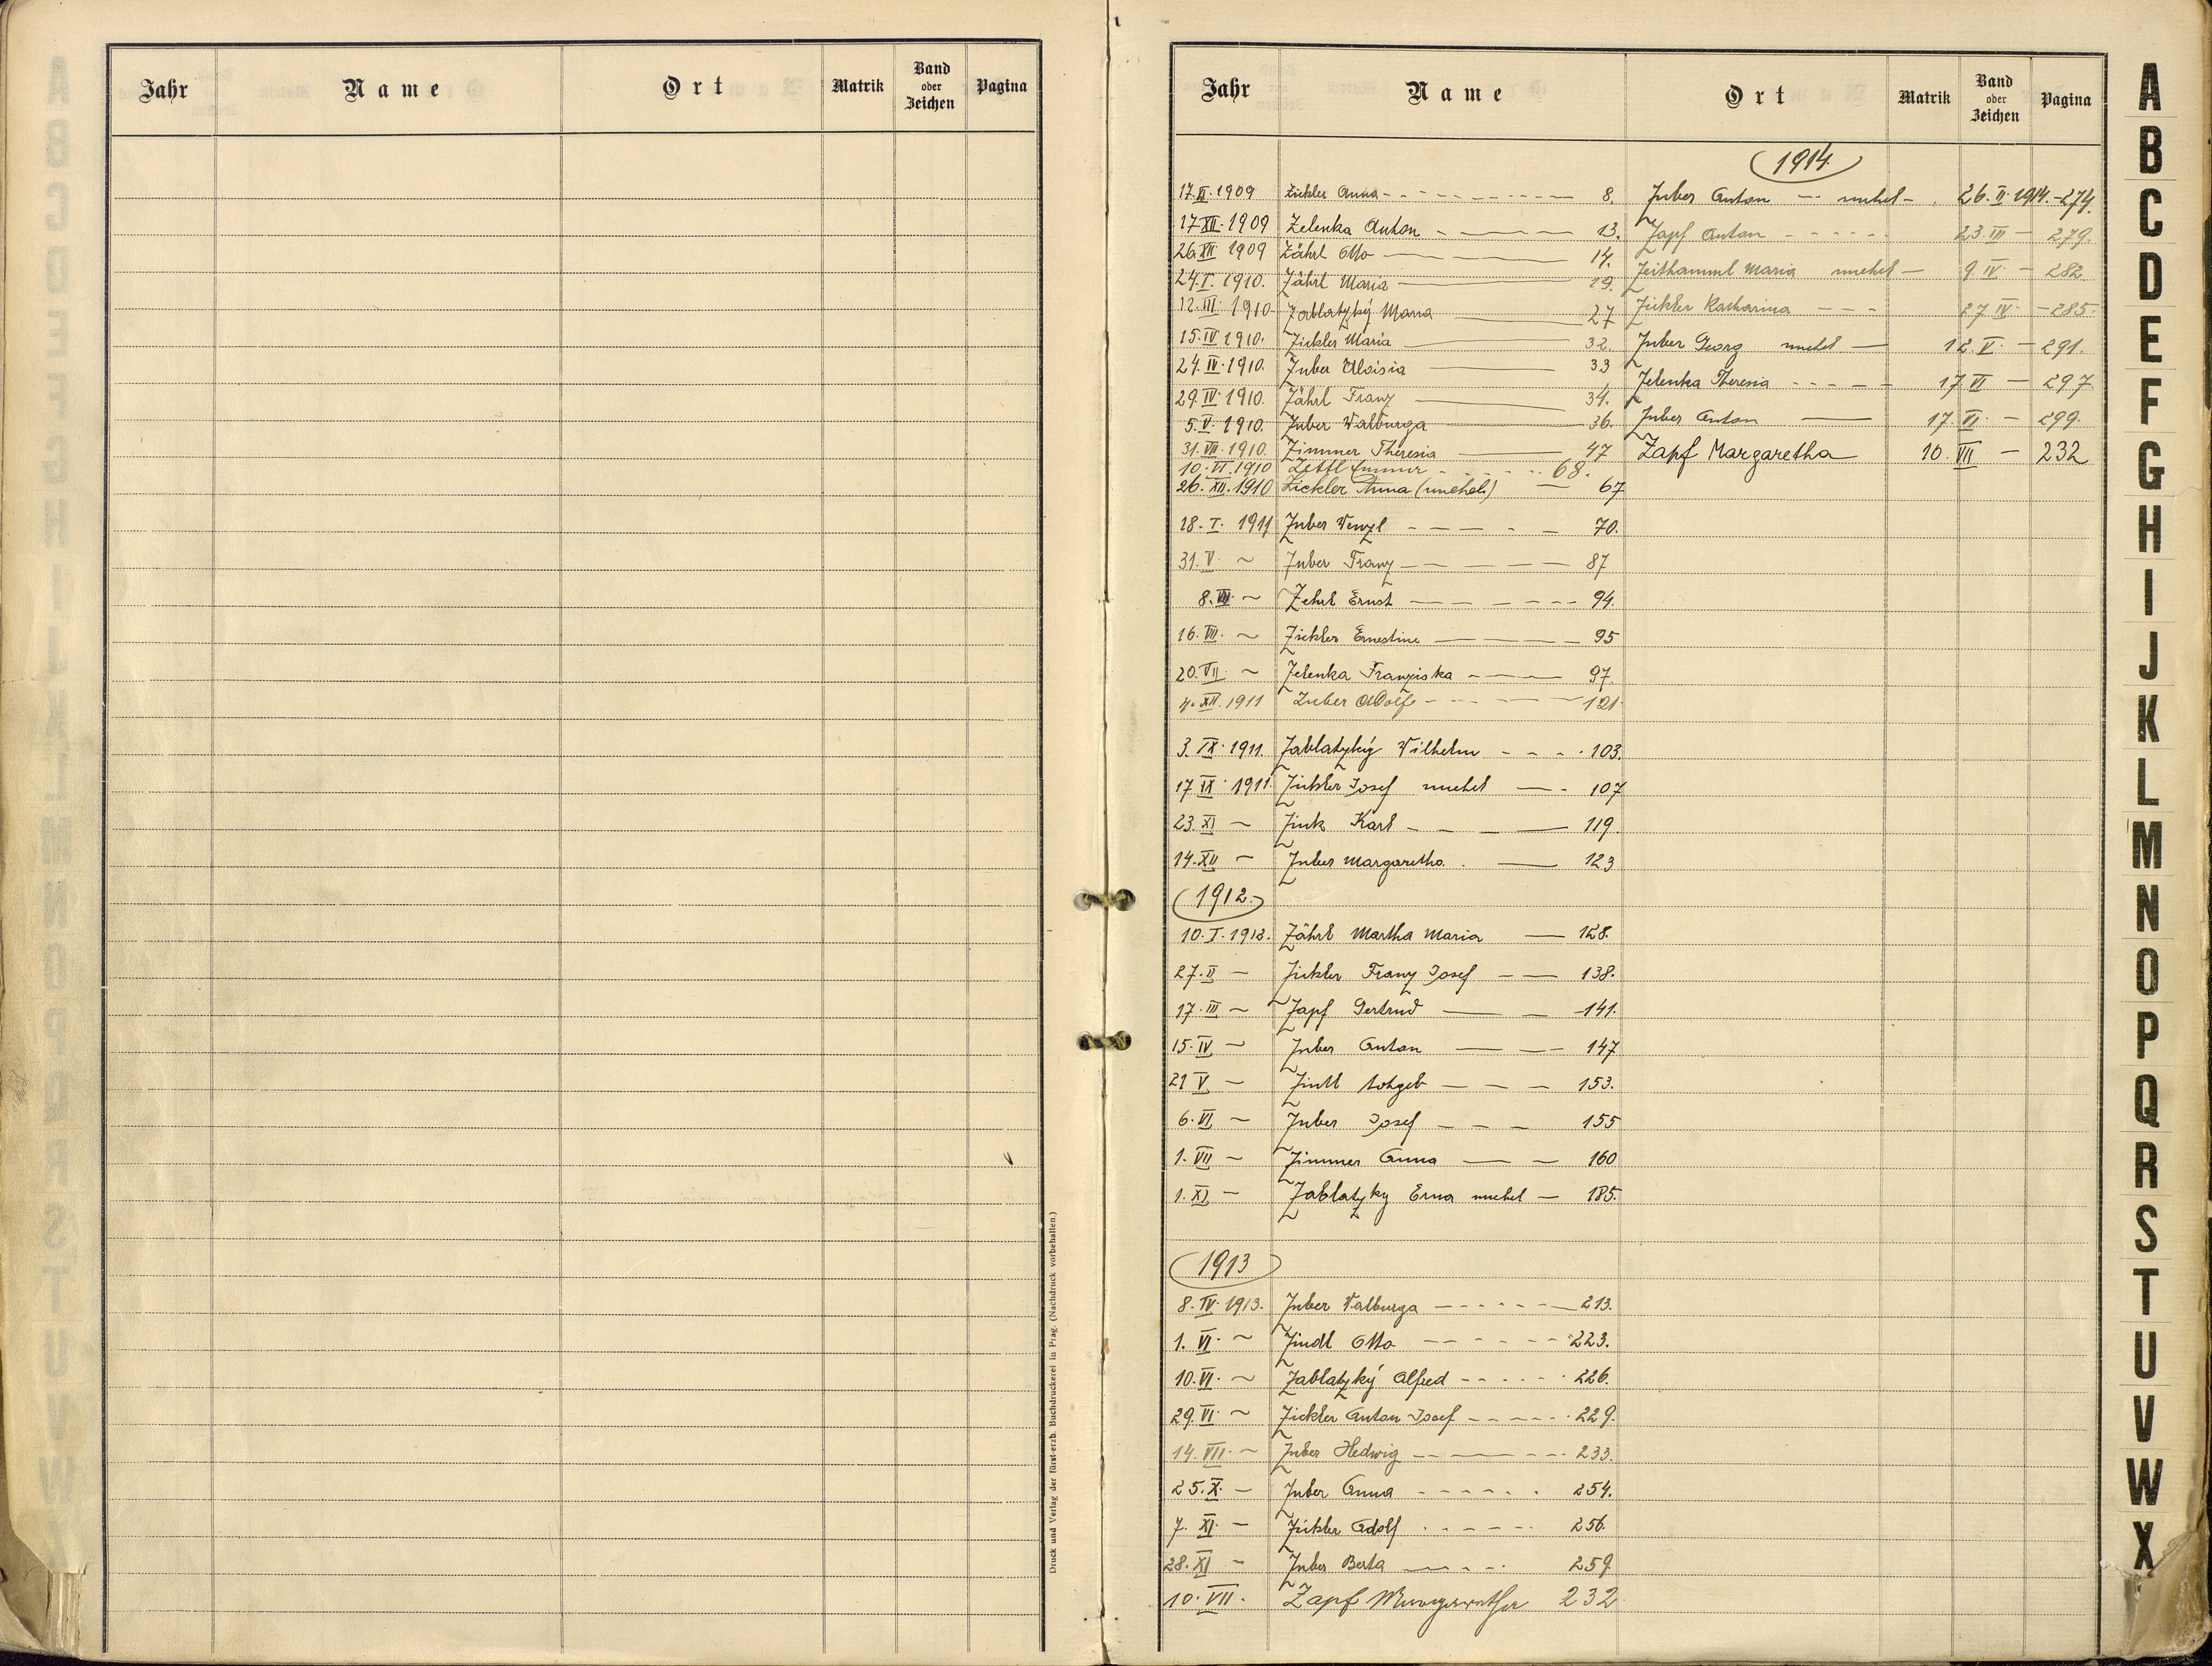 Jahr Name Ort Matrik Band oder Zeichen Pagina
Druck und Verlag der fürst-erzb. Buchdruckerei in Prag. (Nachdruck vorbehalten.)
Jahr Name Ort Matrik Band oder Zeichen Pagina
17. 1909 Zickler Anna 8.
17 XII. 1909 Zelenka Anton 13.
26. XII 1909 Zährl Otto 14.
24. I. 1910. Zährl Maria 19.
12. III. 1910 Zablatzký Maria 27
15. IV 1910. Zickler Maria 32.
24. IV. 1910. Zuber Aloisia 33
29. IV. 1910. Zährl Franz 34.
5. V. 1910. Zuber Walburga 36.
31. VII. 1910. Zimmer Theresia 47
10. VI. 1910 Zettl 68.
26. XII. 1910 Zickler Anna (unehel.) 67
18. I. 1911 Zuber Wenzl 70.
31. V ~ Zuber Franz 87
8. ~ Zehrl Ernst 94.
16. VII. ~ Zickler Ernestine 95
20. VII ~ Zelenka Franziska 97.
4. XII. 1911 Zuber Adolf 121
3. IX. 1911. Zablatzký Wilhelm 103.
17 IX. 1911. Zickler Josef unehel 107
23. XI ~ Zink Karl 119.
14. XII ~ Zuber Margaretha. 123
1912.
10. I. 1912. Zährl Martha Maria 128.
27. II — Zickler Franz Josef 138.
17. III ~ Zapf Gertrud 141.
15. IV ~ Zuber Anton 147
21 V ~ Zintl totgeb 153.
6. VI ~ Zuber Josef 155
1. VII ~ Zimmer Anna 160
1. XI — Zablatzky Erna unehel 185.
1913
8. IV. 1913. Zuber Walburga 213.
1. VI. ~ Zindl Otto 223.
10. VI. ~ Zablatzký Alfred 226.
29. VI ~ Zickler Anton Josef 229.
14. VII. ~ Zuber Hedwig 233.
25. X. — Zuber Anna 254.
7. XI. — Zickler Adolf 256.
28. XI — Zuber Berta 259.
10. VII. Zapf Margaretha 232
1914.
Zuber Anton — unehel — 26. II. 1914. — 274.
Zapf Anton 23. III — 279.
Zeithamml Maria unehel — 9 IV. — 282.
Zickler Katharina 27 IV. — 285.
Zuber Georg unehel — 12. V. — 291.
Zelenka Theresia 17. VI — 297.
Zuber Anton — 17. VI. — 299.
Zapf Margaretha 10. VII — 232
A
B
C
D
E
F
G
H
I
J
K
L
M
N
O
P
Q
R
S
T
U
V
W
X